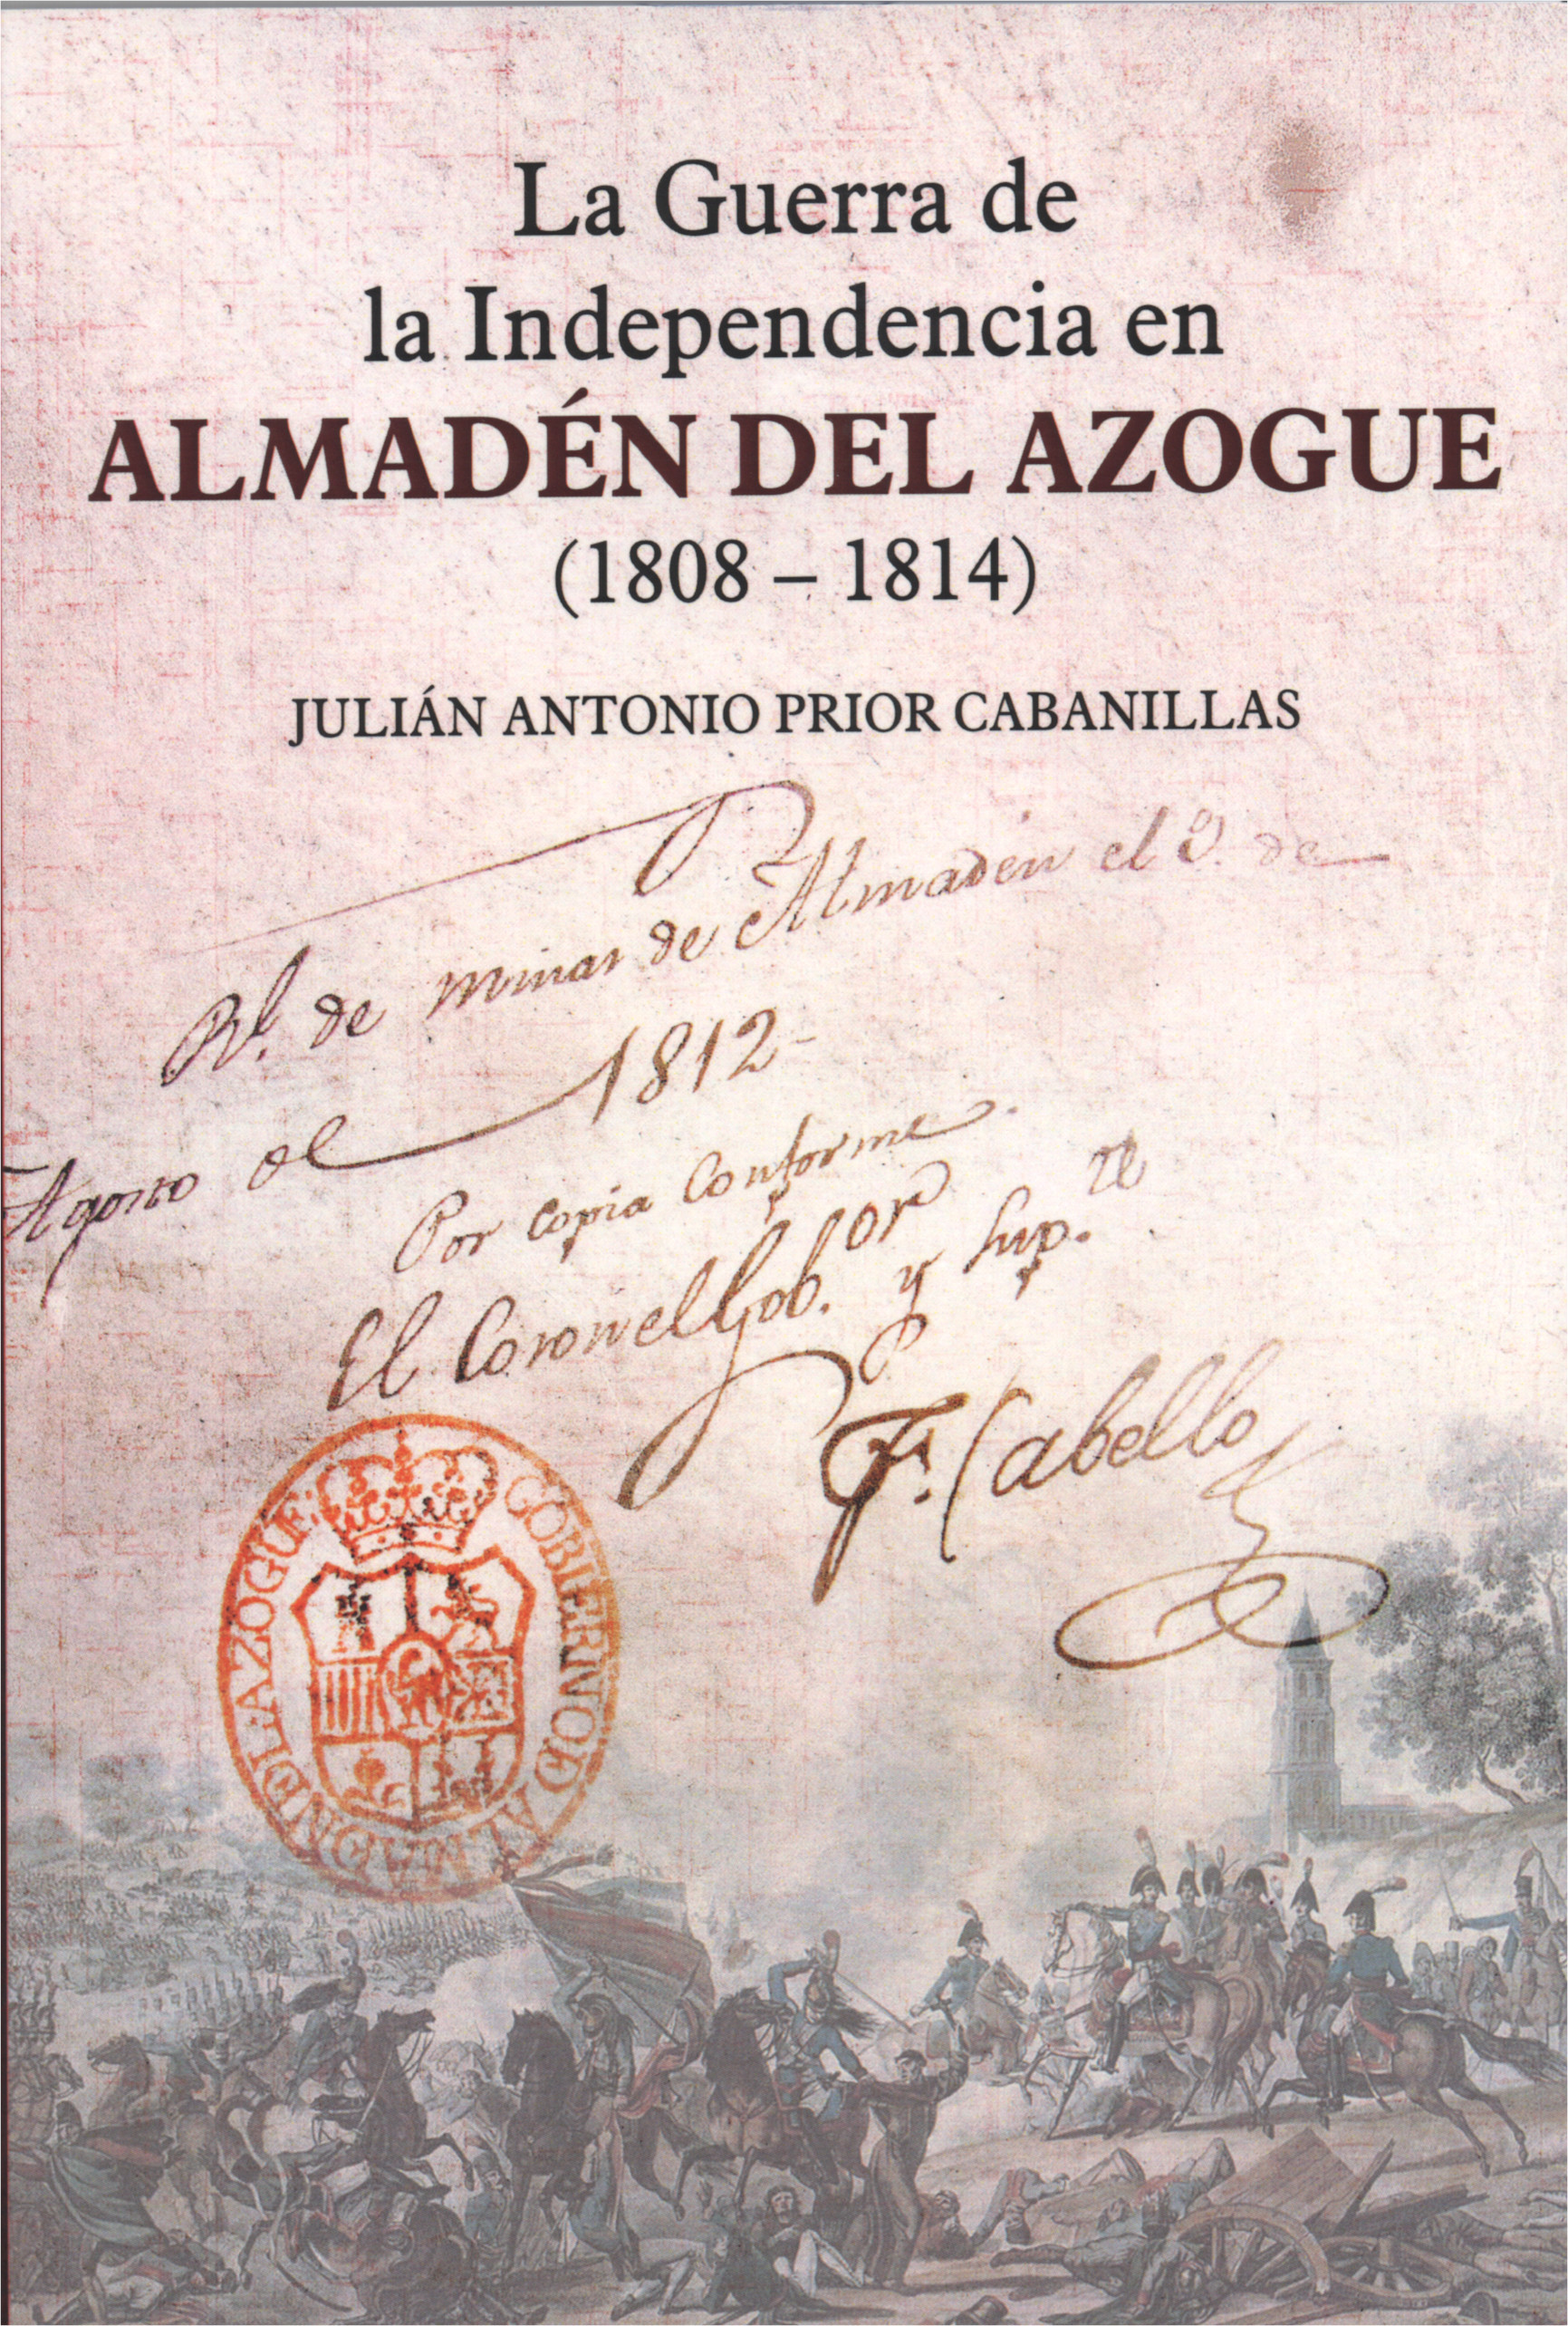 La Guerra de
la Independencia en
ALMADÉN DEL AZOGUE
(1808 – 1814)
JULIÁN ANTONIO PRIOR CABANILLAS
Rl. de minas de Almaden el 3. de
Agosto de 1812
Por copia Conforme.
El Coronel Gob.or y Sup.te
Fr. Cabello
GOBIERNO DE ALMADEN DEL AZOGUE